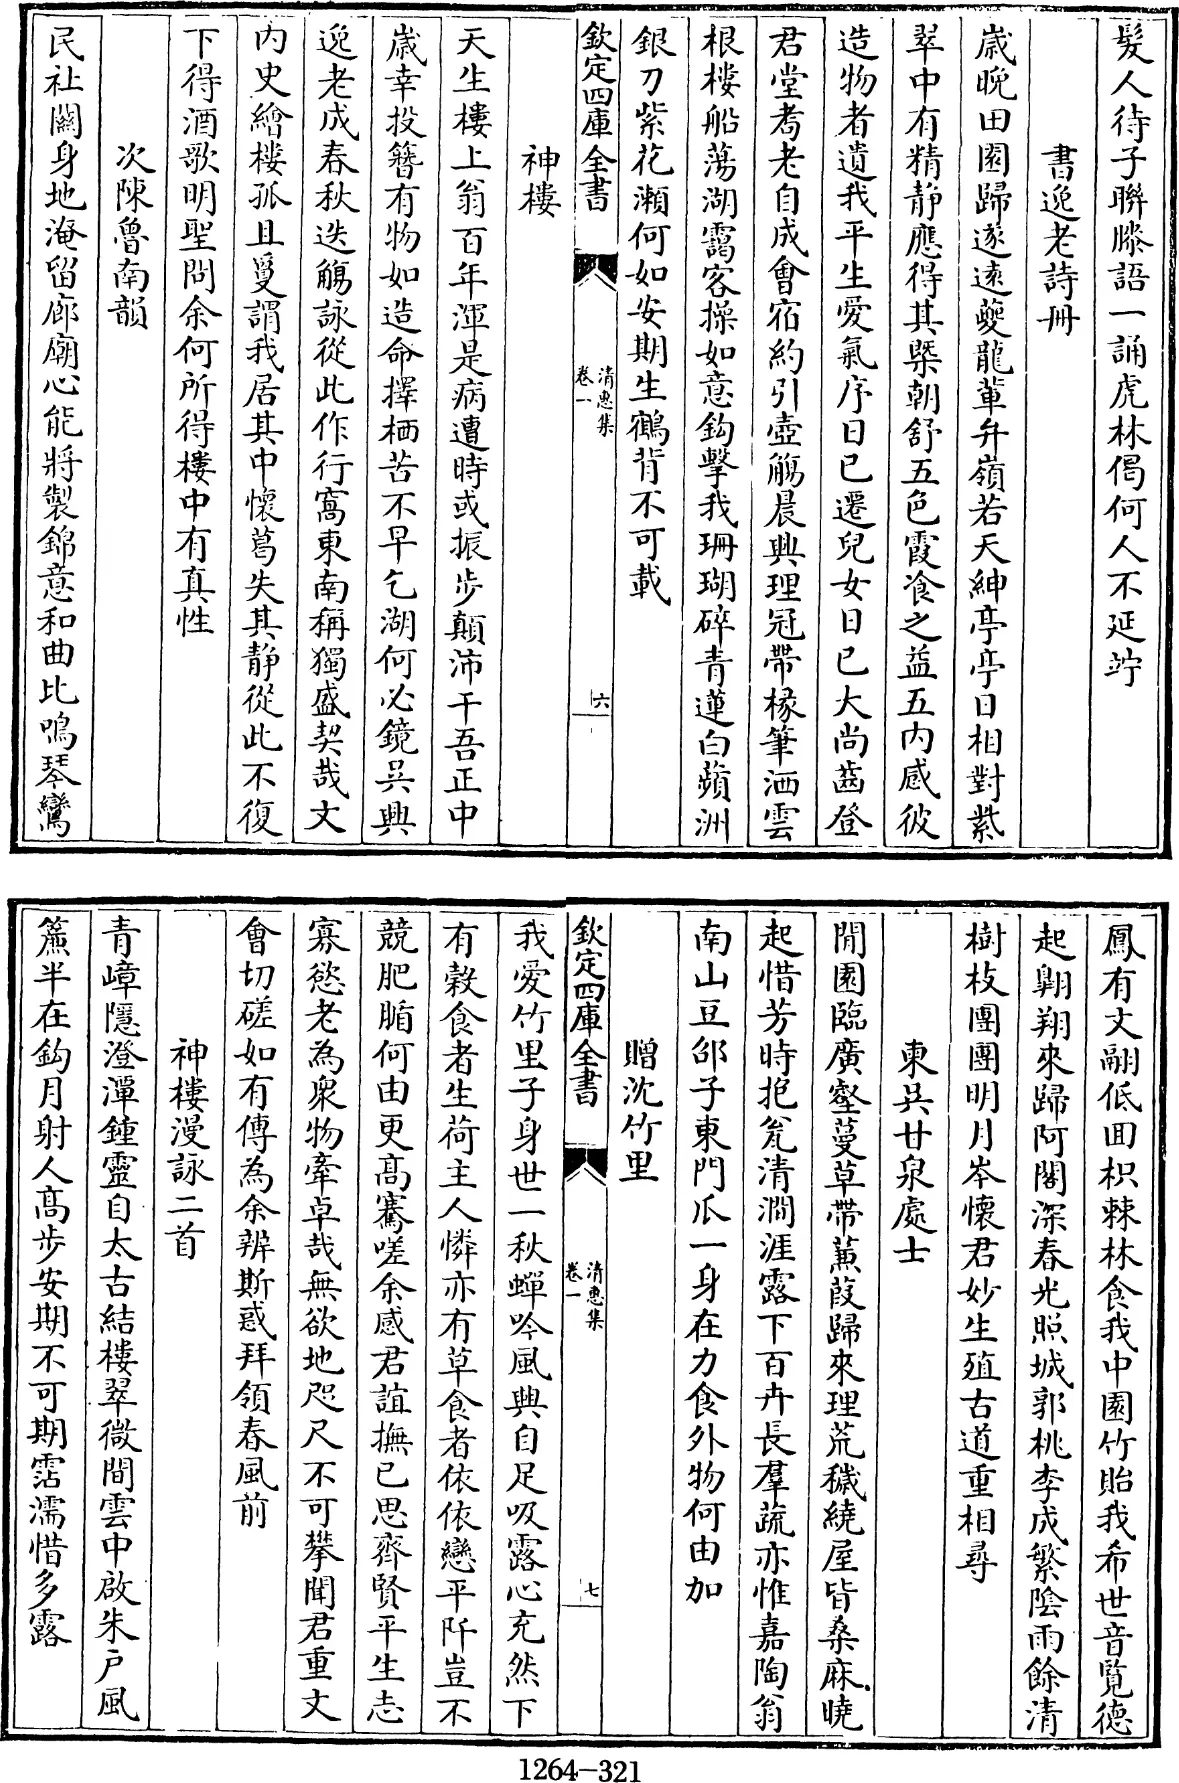 髪人待子聨縢語一誦虎林偈何人不延竚
書逸老詩冊
嵗晩田園歸遂逺夔龍輩弁嶺若天紳亭亭日相對紫
翠中有精静應得其槩朝舒五色霞飡之益五内感彼
造物者遺我平生愛氣序日已遷兒女日已大尚齒登
君堂耆老自成會宿約引壺觴晨興理冠帶椽筆洒雲
根樓船蕩湖靄客操如意鈎擊我珊瑚碎青蓮白蘋洲
銀刀紫花瀨何如安期生鶴背不可載
欽定四庫全書
清惠集
卷一
六
神樓
天生樓上翁百年渾是病遭時或振步顛沛干吾正中
嵗幸投簪有物如造命擇栖苦不早乞湖何必鏡吳興
逸老成春秋迭觴詠從此作行窩東南稱獨盛契哉文
内史繪樓孤且敻謂我居其中懷葛失其静從此不復
下得酒歌明聖問余何所得樓中有真性
次陳魯南韻
民社闗身地淹留廊廟心能將製錦意和曲比鳴琴鸞
鳳有文翮低囬枳棘林食我中園竹貽我希世音覧德
起翺翔來歸阿閣深春光照城郭桃李成繁陰雨餘清
樹枝團團明月岑懷君妙生殖古道重相尋
東吳廿泉處士
閒園臨廣壑蔓草帶蒹葭歸來理荒穢繞屋皆桑麻曉
起惜芳時抱瓮清澗涯露下百卉長羣蔬亦惟嘉陶翁
南山豆邵子東門瓜一身在力食外物何由加
贈沈竹里
欽定四庫全書
清惠集
卷一
七
我愛竹里子身世一秋蟬吟風興自足吸露心充然下
有穀食者生荷主人憐亦有草食者依依戀平阡豈不
競肥腯何由更髙騫嗟余感君誼撫已思齊賢平生志
寡慾老為衆物牽卓哉無欲地咫尺不可攀聞君重文
會切磋如有傳為余辨斯惑拜領春風前
神樓漫詠二首
青嶂隱澄潭鍾靈自太古結樓翠微間雲中啟朱戸風
簾半在鈎月射人髙步安期不可期霑濡惜多露
1264-321